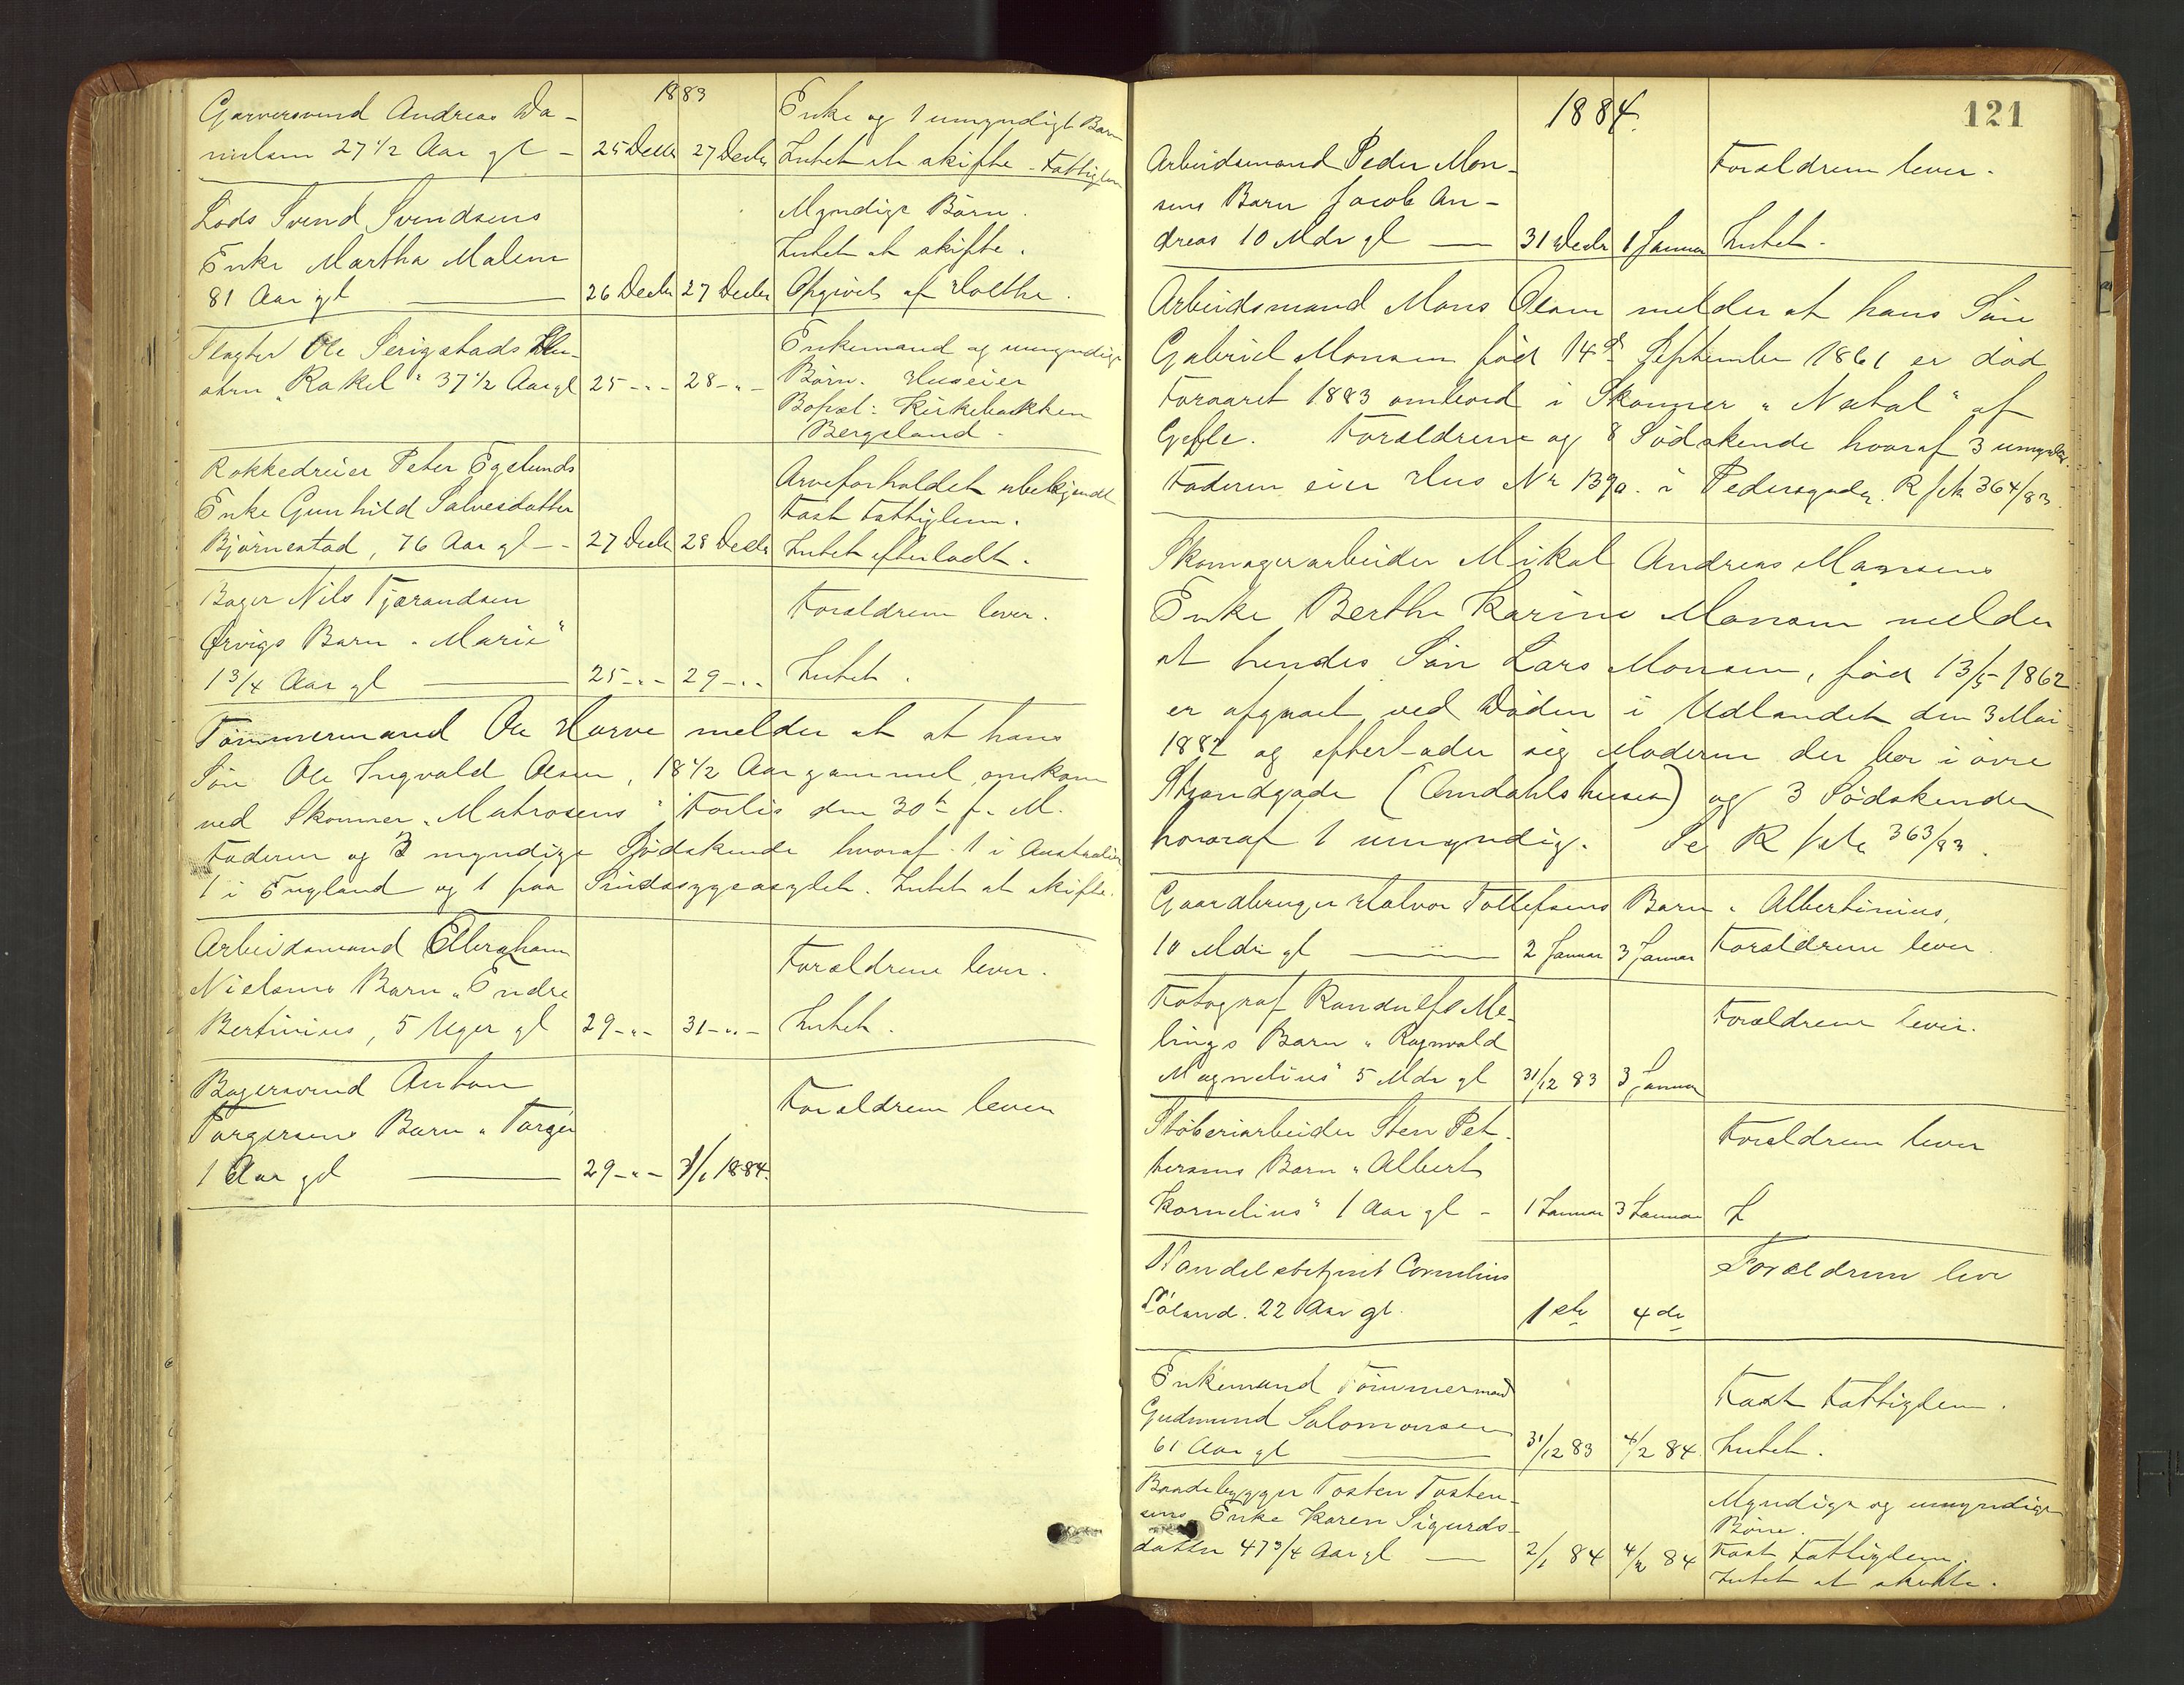 1883
Garversvend Andreas Da-
nielsen 27 1/2 Aar gl - 25 Decbr 27 Decbr
Enke og 1 umyndigt Barn
Intet at skifte - Fattiglem
Lods Svend Svendsens
Enke Martha Malene
81 Aar gl — 26 Decbr 27 Decbr
Myndige Børn.
Intet at skifte.
Opgivet af Holthe.
Slagter Ole Serigstads Hu-
stru "Rakel" 37 1/2 Aar gl 25 - " - 28 - " -
Enkemand og umyndige
Børn. Huseier
Bopæl: Kirkebakken
Bergeland.
Rokkedreier Peter Egelunds
Enke Gunhild Salvesdatter
Bjørnestad, 76 Aar gl - - 27 Decbr 28 Decbr
Arveforholdet ubekjendt
Fast Fattiglem.
Intet efterladt.
Bager Nils Tjørandsen
Ørvigs Barn "Marie"
1 3/4 Aar gl — 25 - " - 29 - " -
Forældrene lever.
Intet.
Tømmermand Ole Horve melder at at hans
Søn Ole Ingvald Olsen, 18 1/2 Aar gammel, omkom
ved Skonner "Matrosens" Forlis den 30te f. M.
Faderen og 3 myndige Sødskende hvoraf 1 i Australien
1 i England og 1 paa Sindssygeasylet. Intet at skifte.
Arbeidsmand Elberg
Nielsens Barn "Endre
Bertinius, 5 Uger gl 29 - " - 31 - " -
Forældrene lever.
Intet.
Bagersvend Anton
Torgersens Barn "Torger
1 Aar gl — 29 - " - 3/1 1884.
Forældrene lever
121
1884.
Arbeidsmand Peder Mon-
sens Barn Jacob An-
dreas 10 Mdr gl — 31 Decbr 1 Januar
Forældrene lever.
Intet.
Arbeidsmand Mons Olsen melder at hans Søn
Gabriel Monsen født 14de September 1861 er død
Foraaret 1883 ombord i Skonner "Natal" af
Gefle. Forældrene og 8 Sødskende hvoraf 3 umyndig.
Faderen eier Hus No 139a. i Pedersgade. R 364/83.
Skomagerarbeider Mikal Andreas Monsens
Enke Berthe Karine Monsen melder
at hendes Søn Lars Monsen, født 13/5 1862
er afgaaet ved Døden i Udlandet den 3 Mai
1882 og efterlader sig Moderen der bor i øvre
Strandgade (Omdahlshuset) og 3 Sødskende
hvoraf 1 umyndig. Se R 363/83.
Gaardbruger Halvor Tollefsens Barn "Albertinius,
10 Mdr gl — 2 Januar 3 Januar Forældrene lever
Fotograf Randulfs Me-
lings Barn "Ragnvald
Magnelius" 5 Mdr gl 31/12 83 3 Januar
Forældrene lever.
Støberiarbeider Sten Pet-
tersens Barn "Albert
Kornelius" 1 Aar gl - 1 Januar 3 Januar
Forældrene lever
I
Handelsbetjent Cornelius
Røland. 22 Aar gl. 1ste 4de
Forældrene leve
Enkemand Tømmermand
Gudmund Salomonsen
61 Aar gl — 31/12 83 4/2 84.
Fast Fattiglem.
Intet.
Baadebygger Tosten Tosten-
sens Enke Karen Sigurds-
datter 47 3/4 Aar gl — 2/1 84 4/2 84
Myndige og umyndige
Børn.
Fast Fattiglem.
Intet at skifte.